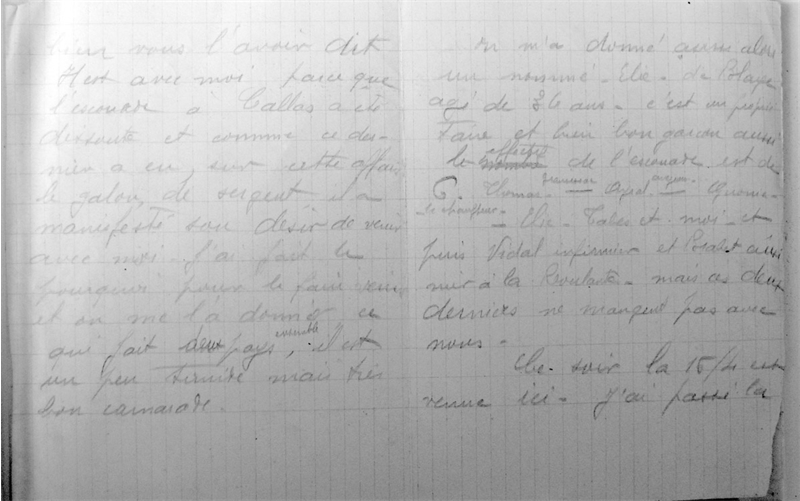 bien vous l'avoir dit
Il est avec moi parce que
l'escouade à Callas a été
dissoute et comme ce der-
nier a eu, sur cette affaire
le galon, de sergent il a
manifesté son désir de venir
avec moi. J'ai fait le
pourquoi pour le faire venir
et on me l'a donné, ce
qui fait deux pays ensemble, il est
un peu timide mais très
bon camarade.
On m'a donné aussi alors
un nommé - Elie - de Blaye
agé de 36 ans - c'est un
et bien bon garçon aussi
le effectif de l'escouade est de
6. Thomas
le chauffeur - Elie - Calas et moi - et
puis Vidal infirmier et cuisi
nier à la Roulante - mais ces deux
derniers ne mangent pas avec
nous -
Ce soir la 15/4 est
venue ici - J'ai passé la